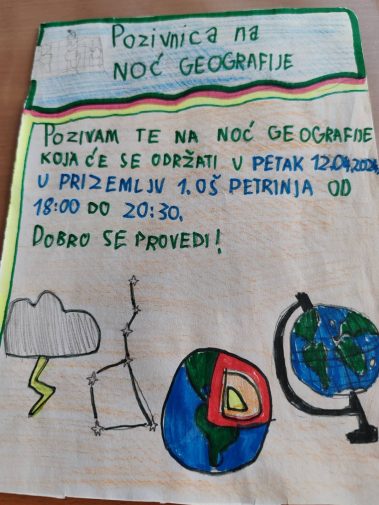 Pozivnica na
NOĆ GEOGRAFIJE
POZIVAM TE NA NOĆ GEOGRAFIJE
KOJA ĆE SE ODRŽATI U PETAK 12.04.2024.
U PRIZEMLJU 1. OŠ PETRINJA OD
18:00 DO 20:30.
DOBRO SE PROVEDI!